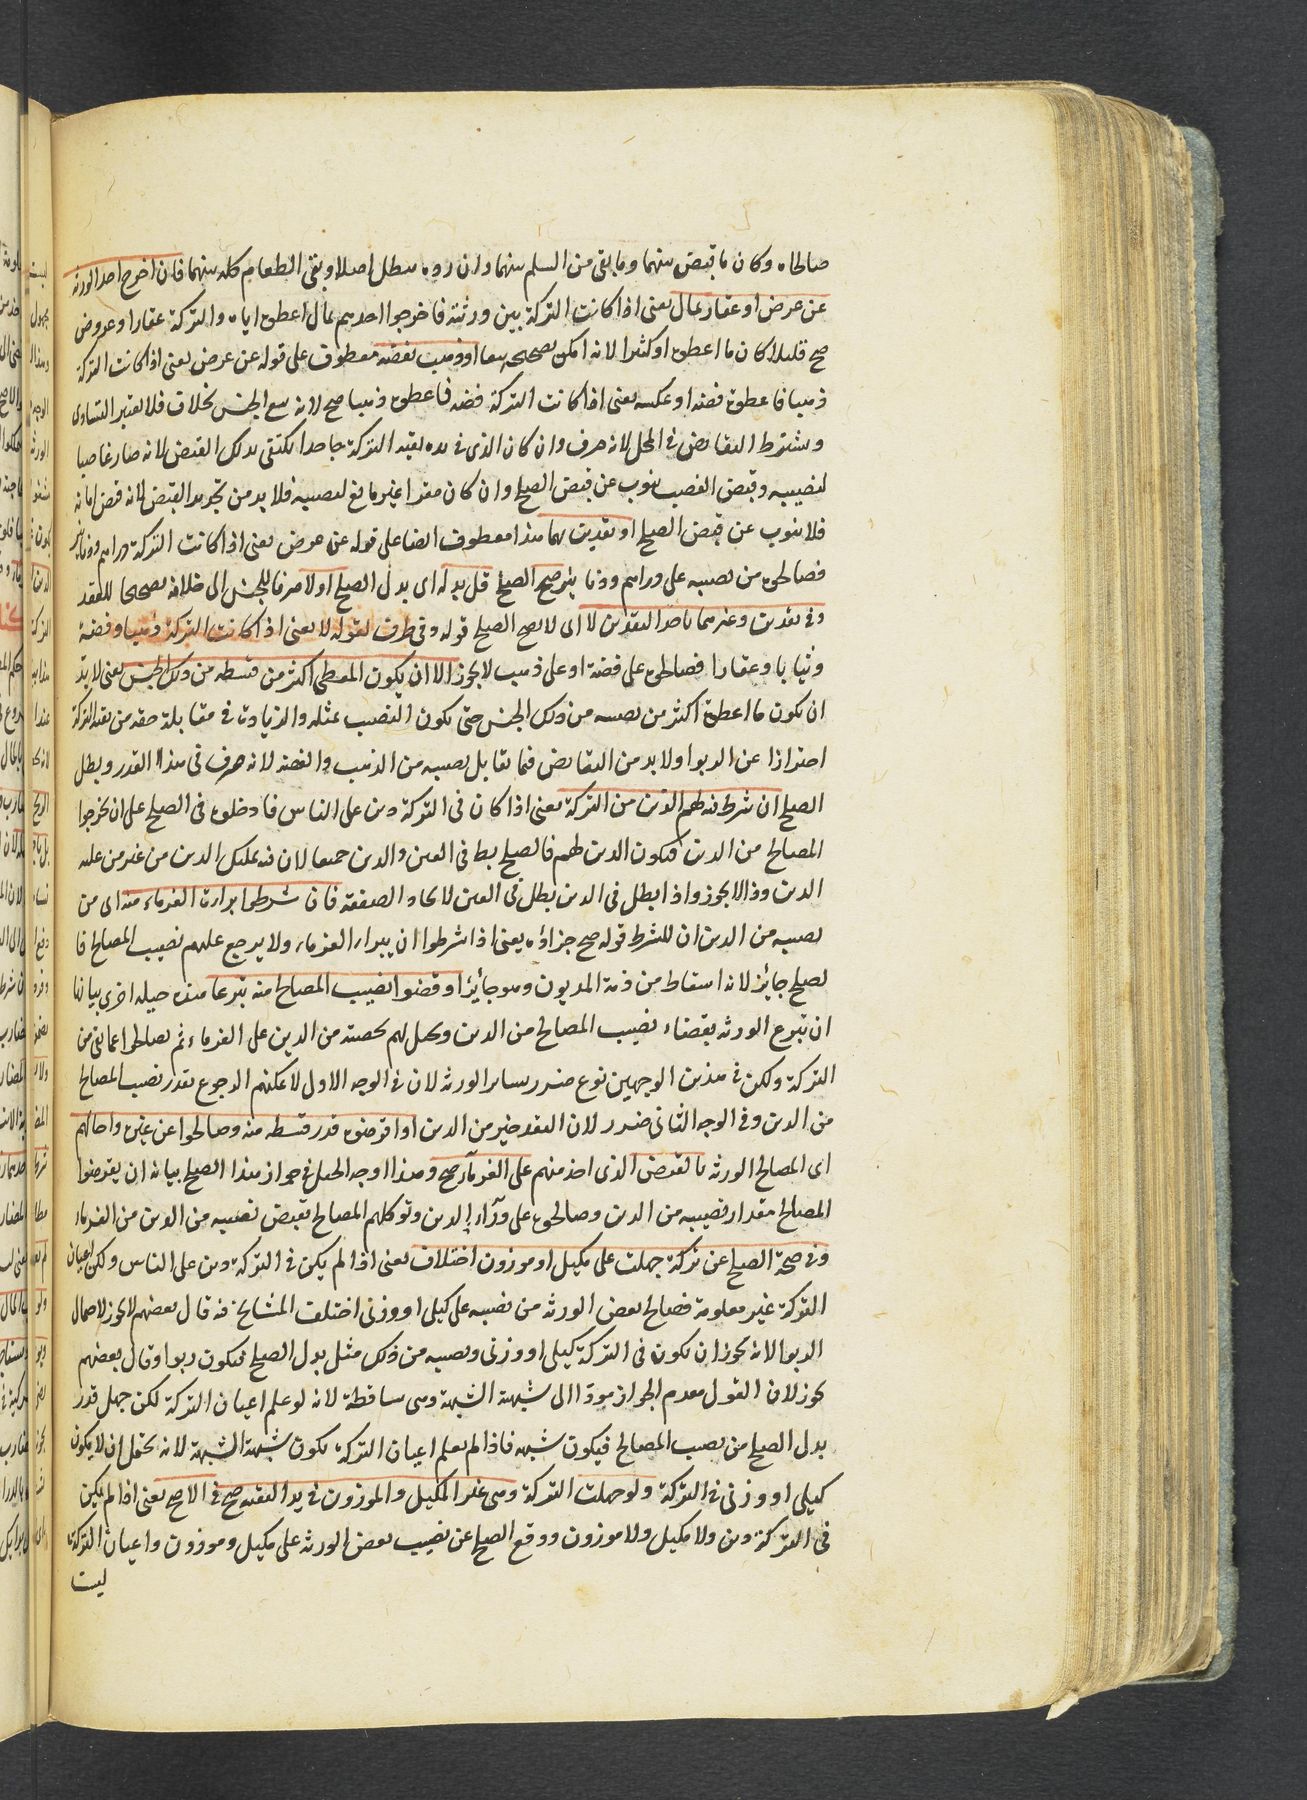 صالحاه وكان ما قبض بينهما وما بقى من السلم بينهما وان رده بطل اصلا وبقى الطعام كله بينهما فان اخرج احد الورثة
عن عرض او عقار بمال يعنى اذا كانت التركة بين ورثة فاخرجوا احدهم بمال اعطوه اياه والتركة عقار او عروض
صح قليلا كان ما اعطوه او كثيرا لانه امكن تصحيحه بيعا او ذهب بفضه معطوف على قوله عن عرض يعنى اذا كانت التركة
ذهبا فاعطوه فضه او عكسه يعنى اذا كانت التركة فضه فاعطوه ذهبا صح لانه بيع الجنس بخلاف فلا يعتبر التساوى
ويشترط التقابض فى المحل لانه صرف وان كان الذى فى يده بقية التركة جاحدا يكتفى بذلك القبض لانه صار غاصبا
لنصيبه وقبض الغصب ينوب عن قبض الصلح وان كان مقرا غير مانع لنصيبه فلا بد من تجديد القبض لانه قبض امانة
فلا ينوب عن قبض الصلح او نقدين بهما هذا معطوف ايضا على قوله عن عرض يعنى اذا كانت التركة دراهم ودنانير
فصالحوه من نصيبه على دراهم ودنانير صح الصلح قل بدله اى بدل الصلح اولا صرفا للجنس الى خلافه تصحيحا للعقد
وفى نقدين وغيرهما باحد النقدين لا اى لا يصح الصلح قوله وفى ظرف لقوله لا يعنى اذا كانت التركة ذهبا وفضة
وثيابا وعقارا فصالحوه على فضة او على ذهب لا يجوز الا ان يكون المعطى اكثر من قسطه من ذلك الجنس يعنى لابد
ان يكون ما اعطوه اكثر من نصيبه من ذلك الجنس حتى يكون النصيب بمثله والزيادة فى مقابلة حقه من بقية التركة
احترازا عن الربوا ولابد من التقابض فيما يقابل نصيبه من الذهب والفضه لانه صرف فى هذا القدر وبطل
الصلح ان شرط فيه لهم الدين من التركة يعنى اذا كان فى التركة دين على الناس فادخلوه فى الصلح على ان يخرجوا
المصالح من الدين فيكون الدين لهم فالصلح بط فى العين والدين جميعا لان فيه تمليك الدين من غير من عليه
الدين وذا لا يجوز واذا بطل فى الدين بطل فى العين لاتحاد الصفقه فان شرطوا براءة الغرماء منه اى من
نصيبه من الدين ان للشرط قوله صح جزاؤه يعنى اذا شرطوا ان يبراء الغرماء ولا يرجع عليهم نصيب المصالح فا
لصلح جائز لانه اسقاط من ذمة المديون وهو جائز او قضوا نصيب المصالح منه تبرعا هذه حيلة اخرى بيانها
ان تبرع الورثه بقضاء نصيب المصالح من الدين ويحل لهم حصته من الدين على الغرماء ثم يصالحوا عما بقى من
التركة ولكن فى هذين الوجهين نوع ضرر بسائر الورثه لان فى الوجه الاول لا يمكنهم الرجوع بقدر نصيب المصالح
من الدين وفى الوجه الثانى ضرر لان النقد خير من الدين او اقرضوه قدر قسطه منه وصالحوا عن غيره واحالهم
اى المصالح الورثه بالقرض الذى اخذ منهم على الغرماء صح وهذا اوجه الحيل فى جواز هذا الصلح بيانه ان يقرضوا
المصالح مقدار نصيبه من الدين وصالحوه على وراء الدين وتوكلهم المصالح بقبض نصيبه من الدين من الغرماء
وفى صحة الصلح عن تركة جهلت على مكيل او موزون اختلاف يعنى اذا لم يكن فى التركة دين على الناس ولكن اعيان
التركة غير معلومة فصالح بعض الورثه من نصيبه على كيلى او وزنى اختلف المشايخ فيه قال بعضهم لا يجوز لاحتمال
الربوا لانه يجوز ان يكون فى التركة كيلى او وزنى ونصيبه من ذلك مثل بدل الصلح فيكون ربوا وقال بعضهم
يجوز لان القول بعدم الجواز مؤدا الى شبهة الشبهة وهى ساقطة لانه لو علم اعيان التركة لكن جهل قدر
بدل الصلح من نصيب المصالح فيكون شبهه فاذا لم يعلم اعيان التركة يكون شبهة الشبهة لانه يحتمل ان لا يكون
كيلى او وزنى فى التركة ولو جهلت التركة وهى غير المكيل والموزون فى يد البقيه صح فى الاصح يعنى اذا لم يكن
فى التركة دين ولا مكيل ولا موزون ووقع الصلح عن نصيب بعض الورثه على مكيل وموزون واعيان التركة
ليست